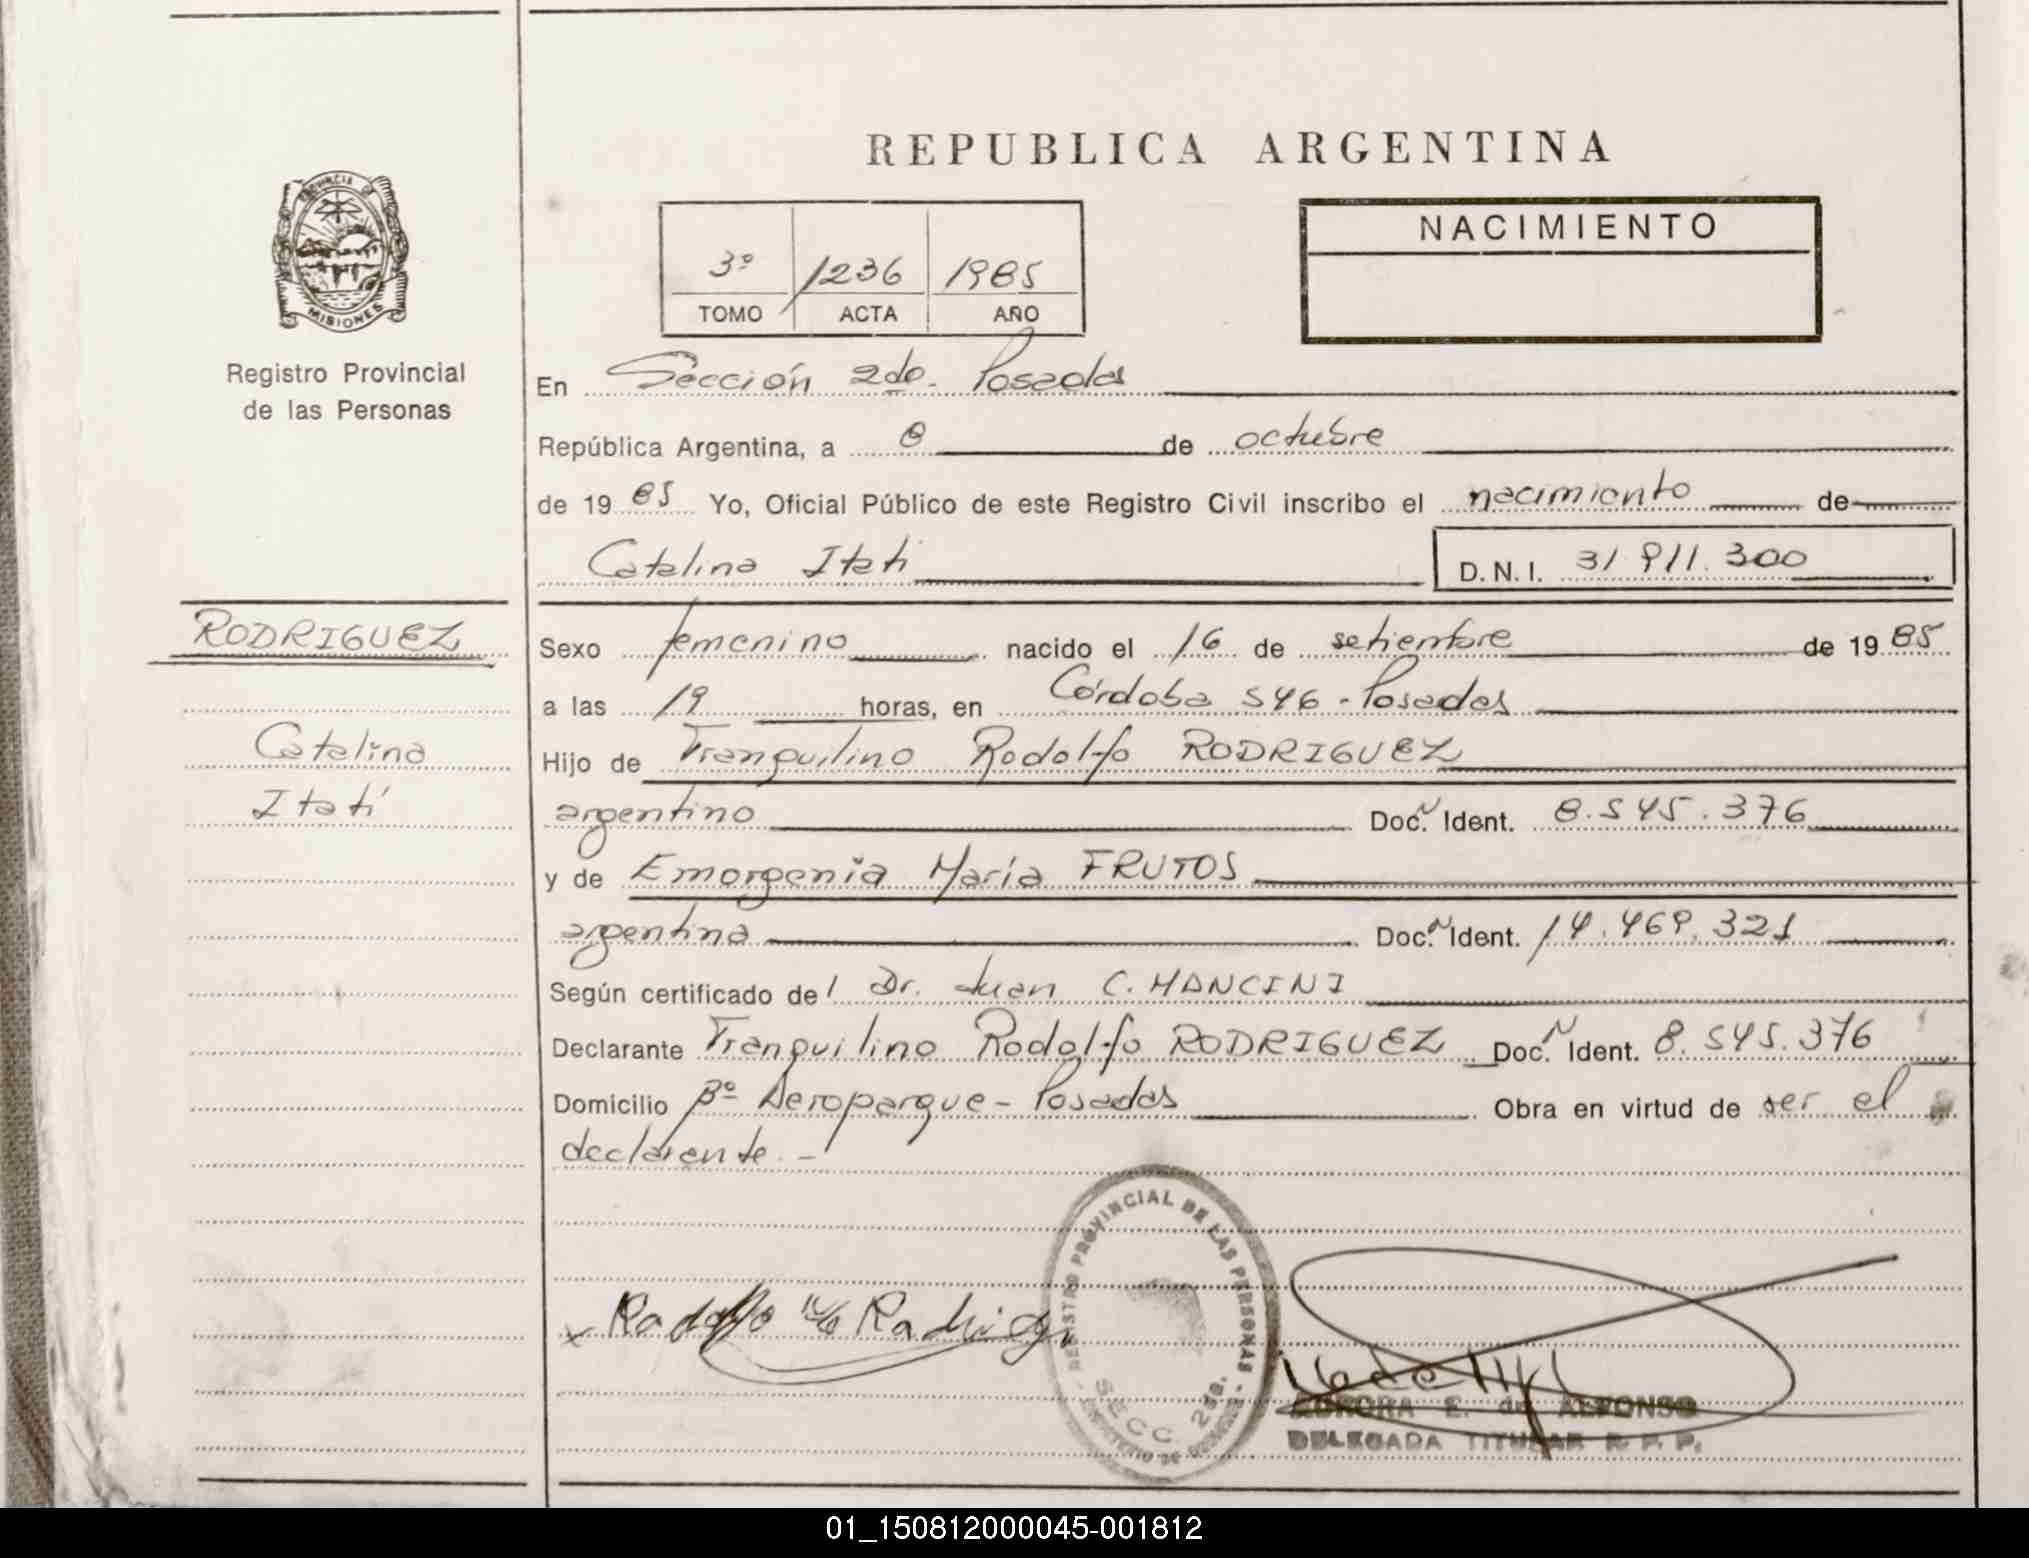 REPUBLICA ARGENTINA
PROVINCIA DE
MISIONES
Registro Provincial
de las Personas
3º 1236 1985
TOMO ACTA AÑO
NACIMIENTO
En Sección 2da. Posadas
República Argentina, a 8 de octubre
de 1985 Yo, Oficial Público de este Registro Civil inscribo el nacimiento de
Catalina Itati D.N.I. 31.911.300
RODRIGUEZ
Catalina
Itatí
Sexo femenino nacido el 16 de setiembre de 1985
a las 19 horas, en Córdoba 546 - Posadas
Hijo de Tranquilino Rodolfo RODRIGUEZ
argentino Doc. Ident. 8.545.376
y de Emorgenia María FRUTOS
argentina Doc. Ident. 14.469.321
Según certificado del Dr. Juan C. MANCINI
Declarante Tranquilino Rodolfo RODRIGUEZ Doc. Ident. 8.545.376
Domicilio Bº Aeroparque - Posadas Obra en virtud de ser el
declarante. -
REGISTRO PROVINCIAL DE LAS PERSONAS
SECC. 2da.
MINISTERIO DE GOBIERNO
x Rodolfo
AURORA E. de ALFONSO
DELEGADA TITULAR R. P. P.
01_150812000045-001812